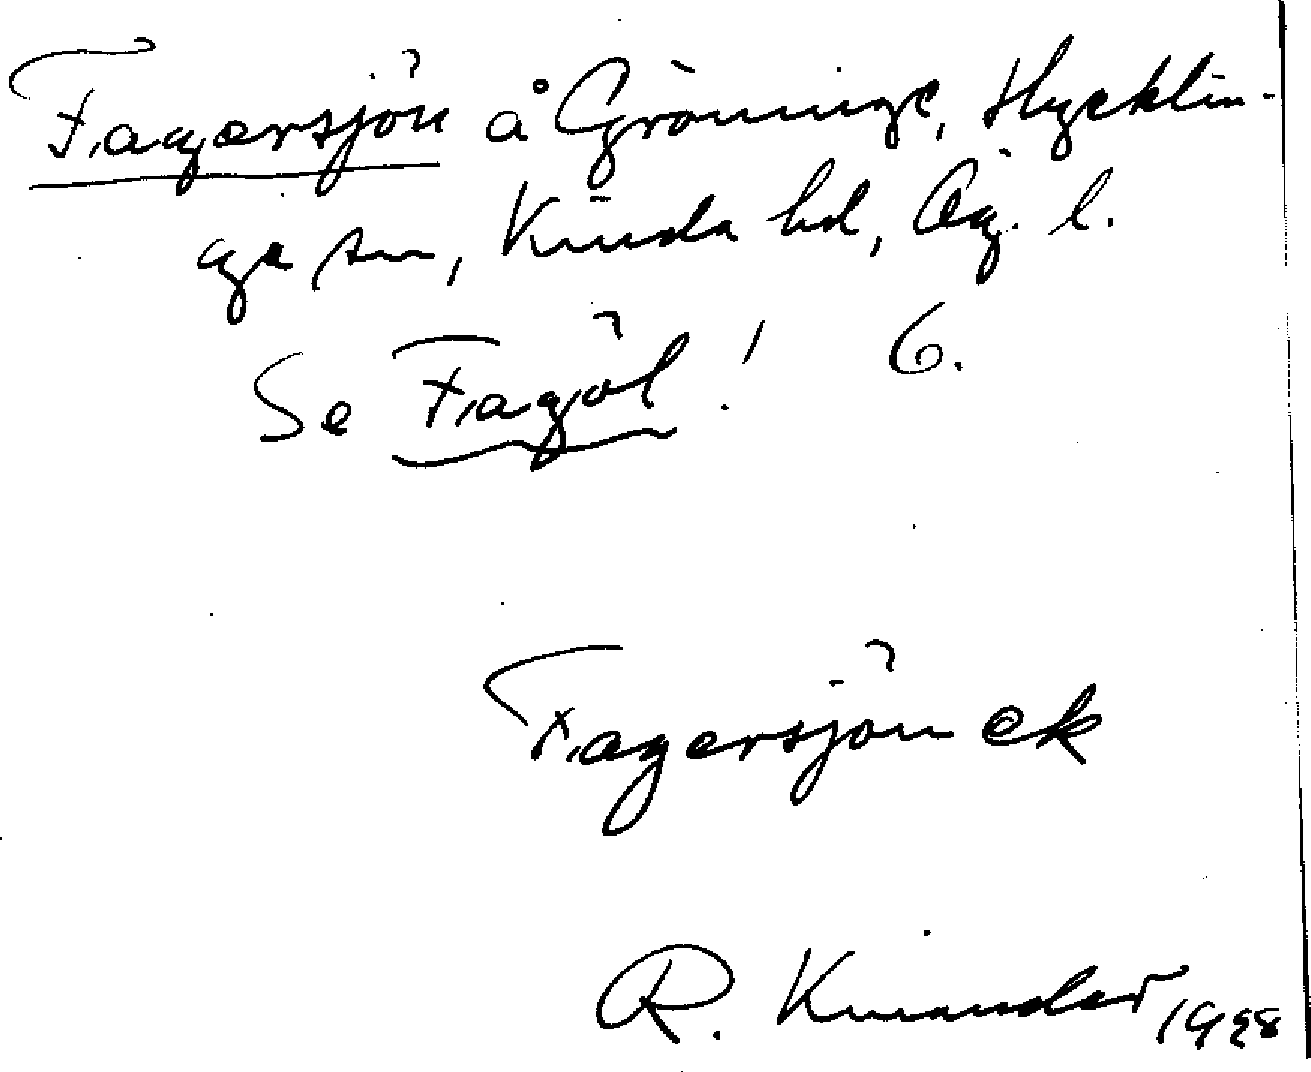 Fagersjön å Gröninge, Hycklin-
ge sn, Kinda hd, Ög. l.
Se Fagöl! 6.
Fagersjön ek
R. Kinander 1928